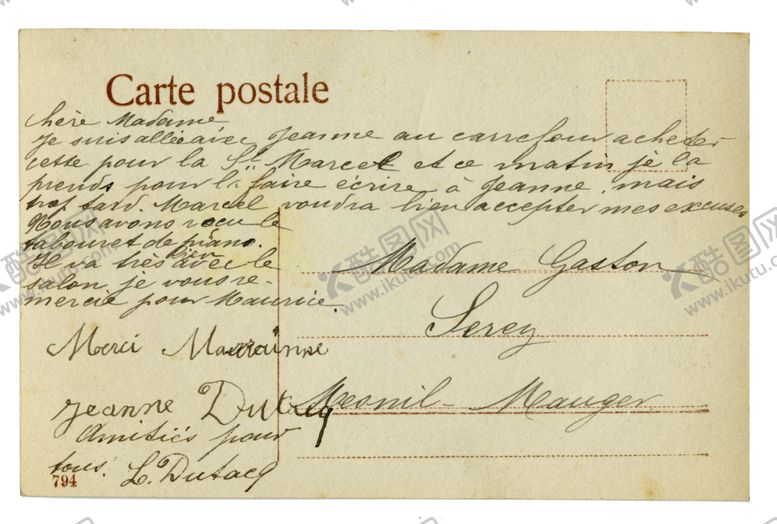 Carte postale
Chère Madame
Je suis allée avec Jeanne au carrefour acheter
cette pour la St Marcel et ce matin je la
prends pour la faire écrire à Jeanne, mais
trop tard. Marcel voudra bien accepter mes excuses
Nous avons reçu le
tabouret de piano.
Il va très bien avec le
salon, je vous re-
mercie pour Maurice.
Merci Marrainne
Jeanne Dutacq
Amitiés pour
tous. L. Dutacq
794
Madame Gaston
Serey
Mesnil-Mauger
酷图网
www.ikutu.com